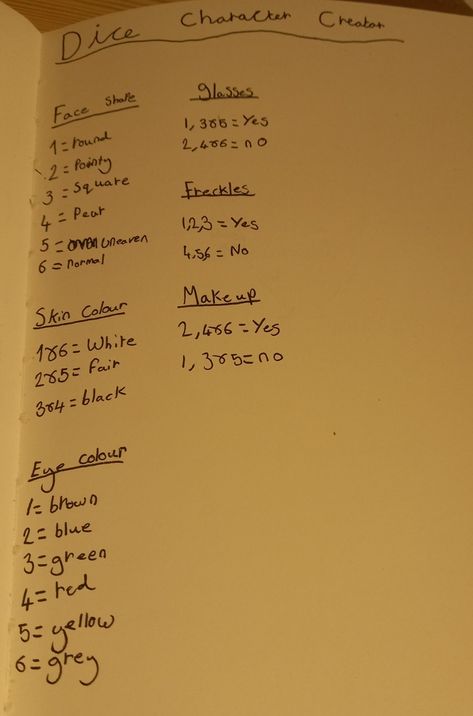 Dice Character Creator
Face Shape
1 = round
2 = Pointy
3 = Square
4 = Pear
5 = uneaven
6 = normal
Skin Colour
1&6 = White
2&5 = Fair
3&4 = black
Eye colour
1 = brown
2 = blue
3 = green
4 = red
5 = yellow
6 = grey
Glasses
1,3&5 = Yes
2,4&6 = no
Freckles
1,2,3 = Yes
4,5,6 = No
Makeup
2,4&6 = Yes
1,3&5 = no